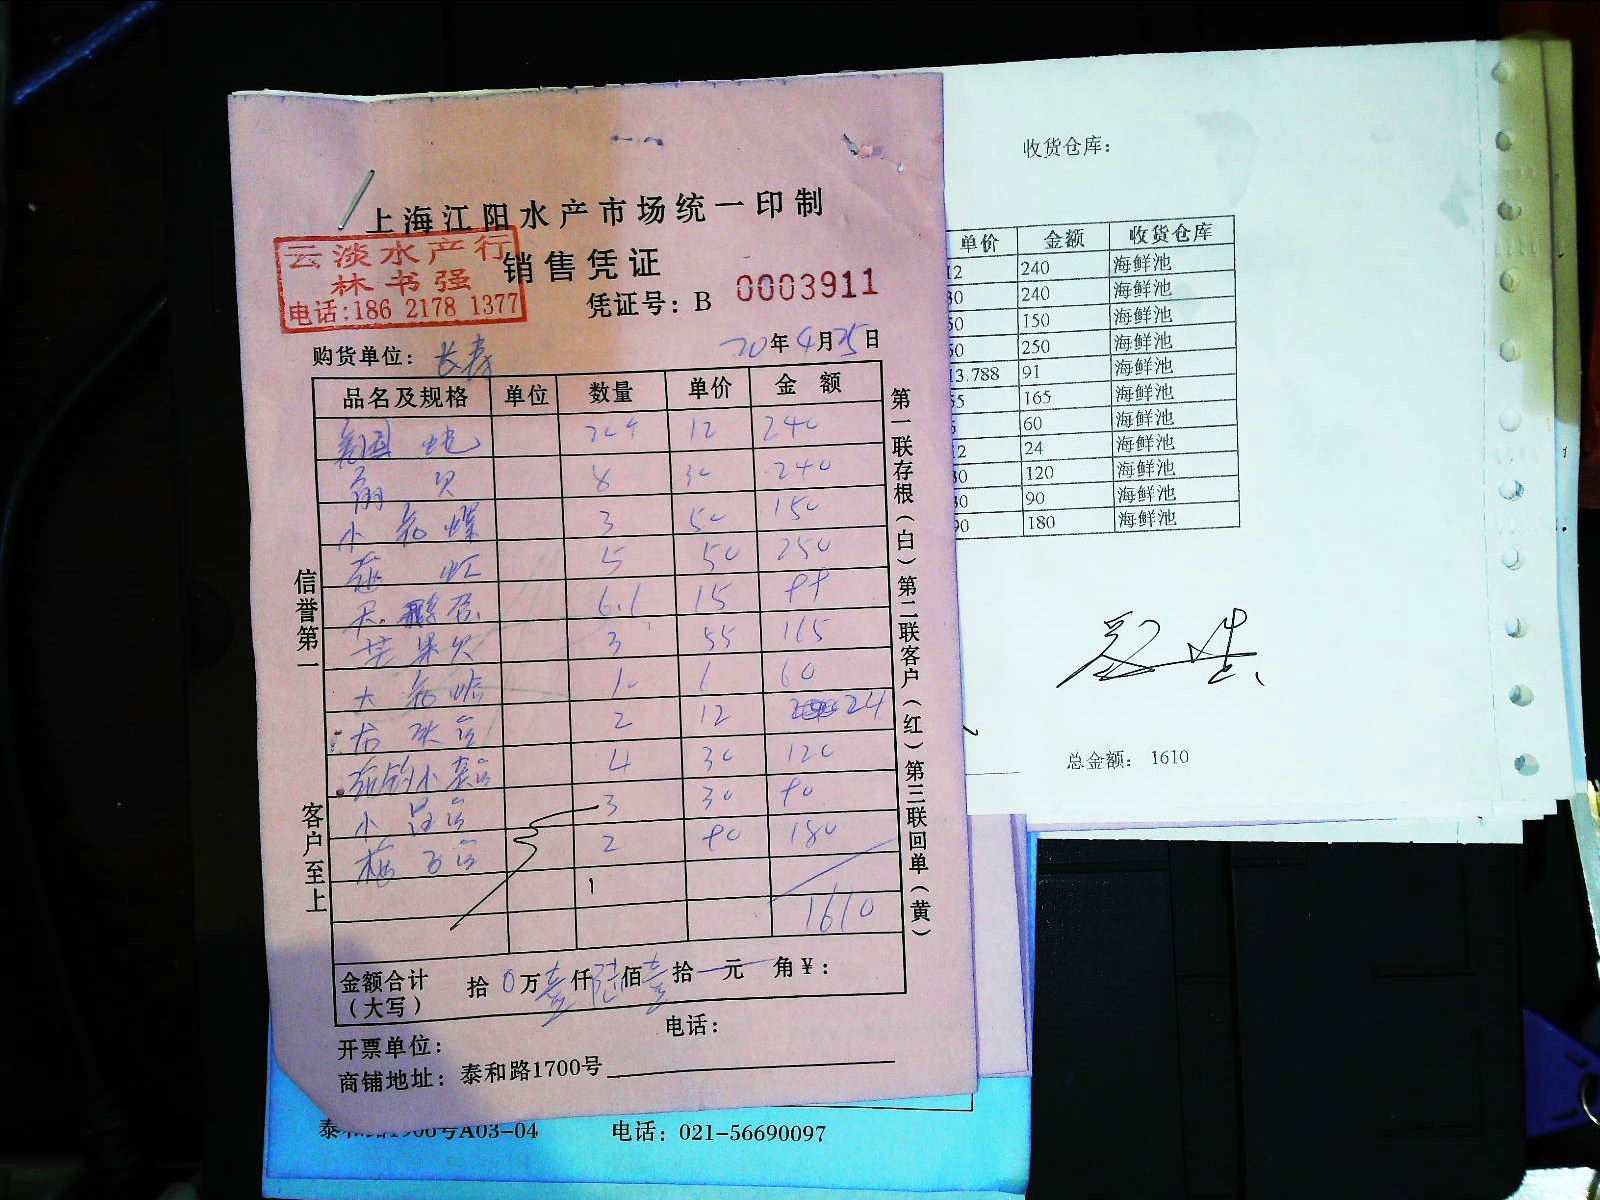 上海江阳水产市场统一印制
云淡水产行
林书强
电话:186 2178 1377
销售凭证
凭证号：B 0003911
购货单位：长春
20年4月25日
品名及规格 单位 数量 单价 金额
12 240
扇贝 8 30 240
小 螺 3 50 150
虾 5 50 250
6.1 15
苹果贝 3 55 165
大 60
2 12 24
4 30 120
小 3 30 90
梅 2 90 180
1610
金额合计（大写） 拾0万壹仟陆佰壹拾一元 角¥：
开票单位： 电话：
商铺地址：泰和路1700号
信誉第一
客户至上
第一联存根（白）第二联客户（红）第三联回单（黄）
A03-04 电话：021-56690097
收货仓库：
单价 金额 收货仓库
12 240 海鲜池
30 240 海鲜池
50 150 海鲜池
50 250 海鲜池
13.788 91 海鲜池
55 165 海鲜池
60 海鲜池
12 24 海鲜池
30 120 海鲜池
30 90 海鲜池
90 180 海鲜池
总金额：1610